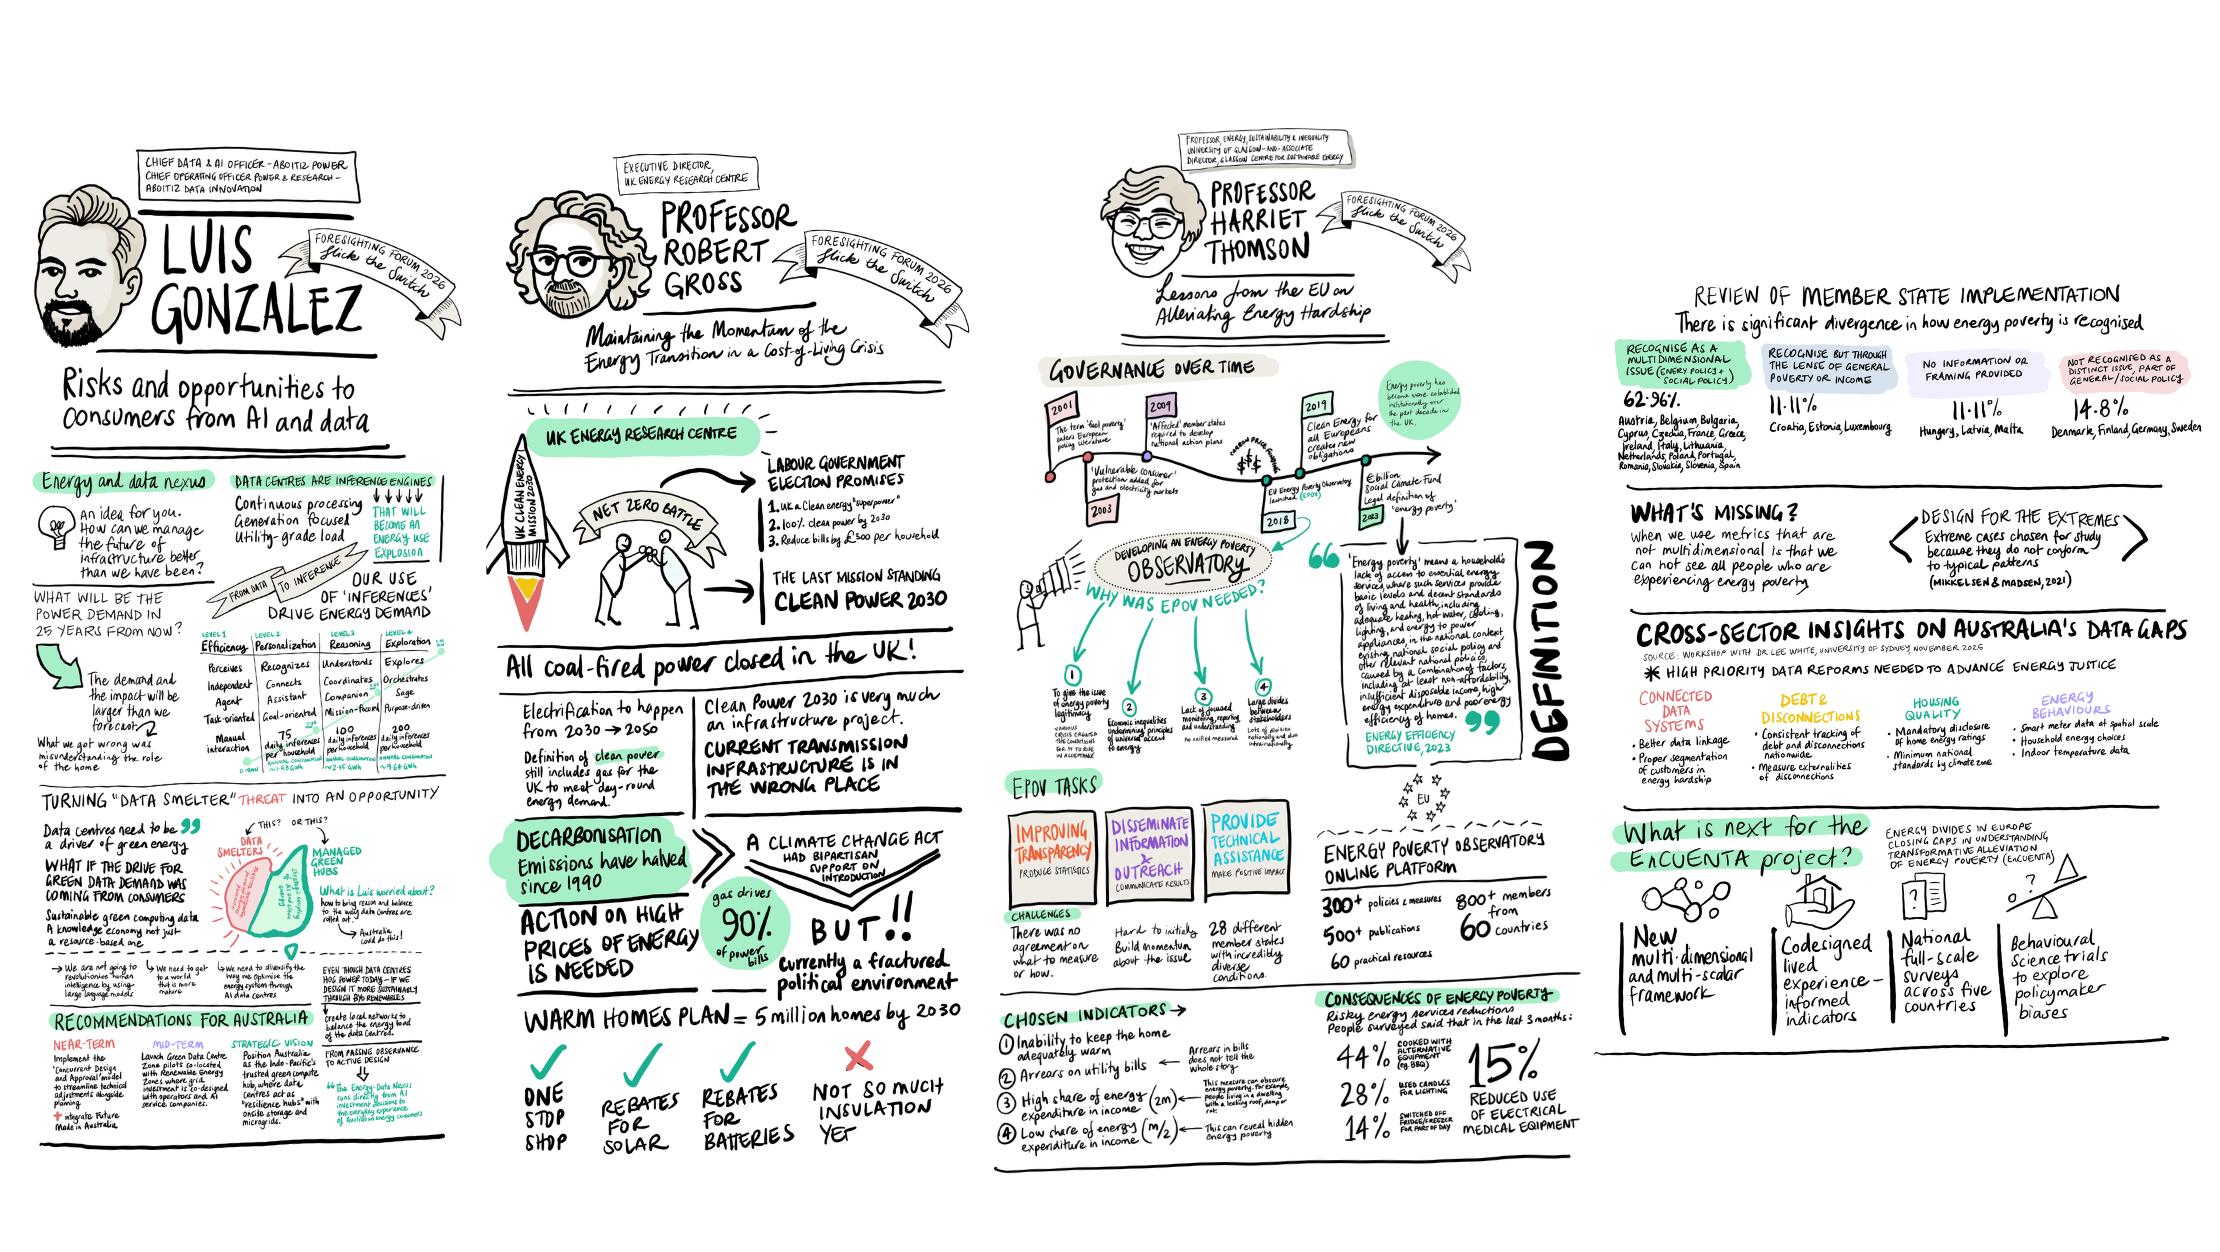 CHIEF DATA & AI OFFICER - ABOITIZ POWER
CHIEF OPERATING OFFICER POWER & RESEARCH -
ABOITIZ DATA INNOVATION
LUIS
GONZALEZ
FORESIGHTING FORUM 2026
Flick the Switch
Risks and opportunities to
consumers from AI and data
Energy and data nexus
An idea for you.
How can we manage
the future of
infrastructure better
than we have been?
DATA CENTRES ARE INFERENCE ENGINES
Continuous processing
Generation focused
Utility-grade load
THAT WILL
BECOME AN
ENERGY USE
EXPLOSION
FROM DATA TO INFERENCE
OUR USE
OF 'INFERENCES'
DRIVE ENERGY DEMAND
WHAT WILL BE THE
POWER DEMAND IN
25 YEARS FROM NOW?
The demand and
the impact will be
larger than we
forecast
What we got wrong was
misunderstanding the role
of the home
LEVEL 1
Efficiency
Perceives
Independent
Agent
Task-oriented
Manual
interaction
LEVEL 2
Personalization
Recognizes
Connects
Assistant
Goal-oriented
75
daily inferences
per household
ANNUAL CONSUMPTION
LEVEL 3
Reasoning
Understands
Coordinates
Companion
Mission-focused
100
daily inferences
per household
ANNUAL CONSUMPTION
LEVEL 4
Exploration
Explores
Orchestrates
Sage
Purpose-driven
200
daily inferences
per household
ANNUAL CONSUMPTION
TURNING "DATA SMELTER" THREAT INTO AN OPPORTUNITY
Data centres need to be
a driver of green energy
WHAT IF THE DRIVE FOR
GREEN DATA DEMAND WAS
COMING FROM CONSUMERS
Sustainable green computing data
A knowledge economy not just
a resource-based one
THIS? OR THIS?
DATA
SMELTERS
MANAGED
GREEN
HUBS
What is Luis worried about?
how to bring reason and balance
to the way data centres are
rolled out.
Australia
could do this!
We are not going to
revolutionise human
intelligence by using
large language models
We need to get
to a world
that is more
mature
We need to diversify the
way we optimise the
energy system through
AI data centres
EVEN THOUGH DATA CENTRES
HOG POWER TODAY - IF WE
DESIGN IT MORE SUSTAINABLY
THROUGH BYO RENEWABLES
Create local networks to
balance the energy load
of the data centres.
FROM PASSIVE OBSERVANCE
TO ACTIVE DESIGN
The Energy-Data Nexus
runs directly from AI
investment decisions to
the everyday experience
of Australian energy consumers
RECOMMENDATIONS FOR AUSTRALIA
NEAR-TERM
Implement the
'Concurrent Design
and Approval' model
to streamline technical
adjustments alongside
planning
+ integrate Future
Made in Australia
MID-TERM
Launch Green Data Centre
Zone pilots co-located
with Renewable Energy
Zones where grid
investment is co-designed
with operators and AI
service companies.
STRATEGIC VISION
Position Australia
as the Indo-Pacific's
trusted green compute
hub, where data
centres act as
"resilience hubs" with
onsite storage and
microgrids.
EXECUTIVE DIRECTOR,
UK ENERGY RESEARCH CENTRE
PROFESSOR
ROBERT
GROSS
FORESIGHTING FORUM 2026
Flick the Switch
Maintaining the Momentum of the
Energy Transition in a Cost-of-Living Crisis
UK ENERGY RESEARCH CENTRE
UK CLEAN ENERGY
MISSION 2030
NET ZERO BATTLE
LABOUR GOVERNMENT
ELECTION PROMISES
1. UK a Clean energy "superpower"
2. 100% clean power by 2030
3. Reduce bills by £300 per household
THE LAST MISSION STANDING
CLEAN POWER 2030
All coal-fired power closed in the UK!
Electrification to happen
from 2030 → 2050
Definition of clean power
still includes gas for the
UK to meet day-round
energy demand.
Clean Power 2030 is very much
an infrastructure project.
CURRENT TRANSMISSION
INFRASTRUCTURE IS IN
THE WRONG PLACE
DECARBONISATION
Emissions have halved
since 1990
A CLIMATE CHANGE ACT
HAD BIPARTISAN
SUPPORT ON
INTRODUCTION
BUT!!
Currently a fractured
political environment
ACTION ON HIGH
PRICES OF ENERGY
IS NEEDED
gas drives
90%
of power
bills
WARM HOMES PLAN = 5 million homes by 2030
ONE
STOP
SHOP
REBATES
FOR
SOLAR
REBATES
FOR
BATTERIES
NOT SO MUCH
INSULATION
YET
PROFESSOR, ENERGY, SUSTAINABILITY & INEQUALITY
UNIVERSITY OF GLASGOW - AND - ASSOCIATE
DIRECTOR, GLASGOW CENTRE FOR SUSTAINABLE ENERGY
PROFESSOR
HARRIET
THOMSON
FORESIGHTING FORUM 2026
Flick the Switch
Lessons from the EU on
Alleviating Energy Hardship
GOVERNANCE OVER TIME
Energy poverty has
become more established
institutionally over
the past decade in
the UK.
2001
The term 'fuel poverty'
enters European
policy literature
2003
'Vulnerable consumer'
protection added for
gas and electricity markets
2009
'Affected' member states
required to develop
national action plans
CARBON PRICE FUNDING
$$$
2018
EU Energy Poverty Observatory
launched (EPOV)
2019
Clean Energy for
all Europeans
creates new
obligations
2023
€billion
Social Climate Fund
Legal definition of
'energy poverty'
DEVELOPING AN ENERGY POVERTY
OBSERVATORY
WHY WAS EPOV NEEDED?
1
To give the issue
of energy poverty
legitimacy
2
Economic inequalities
undermining principles
of universal access
to energy
3
Lack of focused
monitoring, reporting
and understanding
no unified measures
4
Large divides
between
stakeholders
Lots of division
nationally and also
intra-nationally
'Energy poverty' means a household's
lack of access to essential energy
services where such services provide
basic levels and decent standards
of living and health, including
adequate heating, hot water, cooling,
lighting, and energy to power
appliances, in the national context,
existing national social policy and
other relevant national policies,
caused by a combination of factors,
including at least non-affordability,
insufficient disposable income, high
energy expenditure and poor energy
efficiency of homes.
ENERGY EFFICIENCY
DIRECTIVE, 2023
DEFINITION
EU
EPOV TASKS
IMPROVING
TRANSPARENCY
PRODUCE STATISTICS
DISSEMINATE
INFORMATION
&
OUTREACH
COMMUNICATE RESULTS
PROVIDE
TECHNICAL
ASSISTANCE
MAKE POSITIVE IMPACT
CHALLENGES
There was no
agreement on
what to measure
or how.
Hard to initially
Build momentum
about the issue
28 different
member states
with incredibly
diverse
conditions.
ENERGY POVERTY OBSERVATORY
ONLINE PLATFORM
300+ policies & measures
500+ publications
60 practical resources
800+ members
from
60 countries
CHOSEN INDICATORS →
1 Inability to keep the home
adequately warm
2 Arrears on utility bills
Arrears in bills
does not tell the
whole story
3 High share of energy
expenditure in income (2m)
This measure can obscure
energy poverty. For example,
people living in a dwelling
with a leaking roof, damp or
rot.
4 Low share of energy
expenditure in income (m/2)
This can reveal hidden
energy poverty
CONSEQUENCES OF ENERGY POVERTY
Risky energy services reductions
People surveyed said that in the last 3 months:
44%
COOKED WITH
ALTERNATIVE
EQUIPMENT
(eg. BBQ)
28%
USED CANDLES
FOR LIGHTING
14%
SWITCHED OFF
FRIDGE/FREEZER
FOR PART OF DAY
15%
REDUCED USE
OF ELECTRICAL
MEDICAL EQIPMENT
REVIEW OF MEMBER STATE IMPLEMENTATION
There is significant divergence in how energy poverty is recognised
RECOGNISE AS A
MULTIDIMENSIONAL
ISSUE (ENERY POLICY +
SOCIAL POLICY)
62.96%
Austria, Belgium, Bulgaria,
Cyprus, Czechia, France, Greece,
Ireland, Italy, Lithuania,
Netherlands, Poland, Portugal,
Romania, Slovakia, Slovenia, Spain
RECOGNISE BUT THROUGH
THE LENSE OF GENERAL
POVERTY OR INCOME
11.11%
Croatia, Estonia, Luxembourg
NO INFORMATION OR
FRAMING PROVIDED
11.11%
Hungary, Latvia, Malta
NOT RECOGNISED AS A
DISTINCT ISSUE, PART OF
GENERAL/SOCIAL POLICY
14.8%
Denmark, Finland, Germany, Sweden
WHAT'S MISSING?
When we use metrics that are
not multidimensional is that we
can not see all people who are
experiencing energy poverty
DESIGN FOR THE EXTREMES
Extreme cases chosen for study
because they do not conform
to typical patterns
(MIKKELSEN & MADSEN, 2021)
CROSS-SECTOR INSIGHTS ON AUSTRALIA'S DATA GAPS
SOURCE: WORKSHOP WITH DR LEE WHITE, UNIVERSITY OF SYDNEY NOVEMBER 2025
* HIGH PRIORITY DATA REFORMS NEEDED TO ADVANCE ENERGY JUSTICE
CONNECTED
DATA
SYSTEMS
• Better data linkage
• Proper segmentation
of customers in
energy hardship
DEBT &
DISCONNECTIONS
• Consistent tracking of
debt and disconnections
nationwide
• Measure externalities
of disconnections
HOUSING
QUALITY
• Mandatory disclosure
of home energy ratings
• Minimum national
standards by climate zone
ENERGY
BEHAVIOURS
• Smart meter data at spatial scale
• Household energy choices
• Indoor temperature data
What is next for the
EnCUENTA project?
ENERGY DIVIDES IN EUROPE
CLOSING GAPS IN UNDERSTANDING
TRANSFORMATIVE ALLEVIATION
OF ENERGY POVERTY (EnCUENTA)
New
multi-dimensional
and multi-scalar
framework
Codesigned
lived
experience-
informed
indicators
?
National
full-scale
surveys
across five
countries
?
Behavioural
science trials
to explore
policymaker
biases